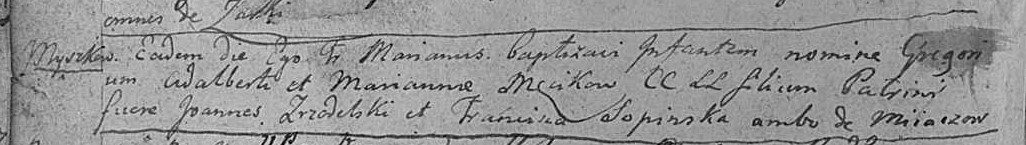 omnes de Zarki
Myszkow. Eadem die Ego Fr Marianus. baptizavi Infantem nomine Gregori
um Adalberti et Marianne Mecikow CC LL filium Patrini
fuere Joannes. Zrzodelski et Francisca Sopinska ambo de Mijaczow